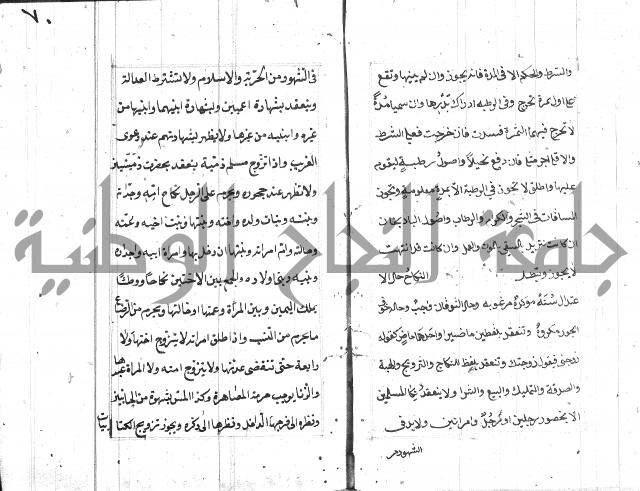 والشرط والحكم الا في المدة فانه يجوز وان لم يبينها وتقع
على اول ثمرة تخرج وفي الرطبة ادراك بذرها وان سميا مدة
لا تخرج فيها الثمرة فسدت فان خرجت فعلى الشرط
والا فله اجر مثله فان دفع نخيلا واصول رطبة ليقوم
عليها واطلق لا تجوز في الرطبة الا بمدة معلومة وتجوز
المساقات في الشجر والكروم والرطاب واصول الباذنجان
ان كانت تزيد بالسقي والعمل وان كانت قد انتهت
لا يجوز وتبطل
النكاح حال الا
عتدال سنة مؤكدة مرغوبة وحال التوقان واجب وحال خوف
الجور مكروه وتنعقد بلفظين ماضيين او احدهما ماض كقوله
زوجني فيقول زوجتك وتنعقد بلفظ النكاح والتزويج والهبة
والصدقة والتمليك والبيع والشرا ولا ينعقد نكاح المسلمين
الا بحضور رجلين او رجل وامراتين ولابد في
الشهود من
٧٠
في الشهود من الحرية والاسلام ولا تشترط العدالة
وينعقد بشهادة اعميين وبشهادة ابنيهما وابنيها من
غيره وابنيه من غيرها ولا يظهر بشهادتهم عند دعوى
القريب واذا تزوج مسلم ذمية ينعقد بحضرة ذميين
ولا تظهر عند جحوده ويحرم على الرجل نكاح امه وجداته
وبنته وبنات ولده واخته وبنتها وبنت اخيه وعمته
وخالته وام امراته وبنتها ان دخل بها وامراة ابيه واجداده
وبنيه وبني اولاده والجمع بين الاختين نكاحا ووطئا
بملك اليمين وبين المراة وعمتها او خالتها ويحرم من الرضاع
ما يحرم من النسب واذا طلق امراته لا يتزوج اختها ولا
رابعة حتى تنقضي عدتها ولا يتزوج امته ولا المراة عبدها
والزنا يوجب حرمة المصاهرة وكذا المس بشهوة من الجانبين
ونظره الى فرجها الداخل ونظرها الى ذكره ويجوز تزويج الكتا
بيات
جامعة النجاح الوطنية